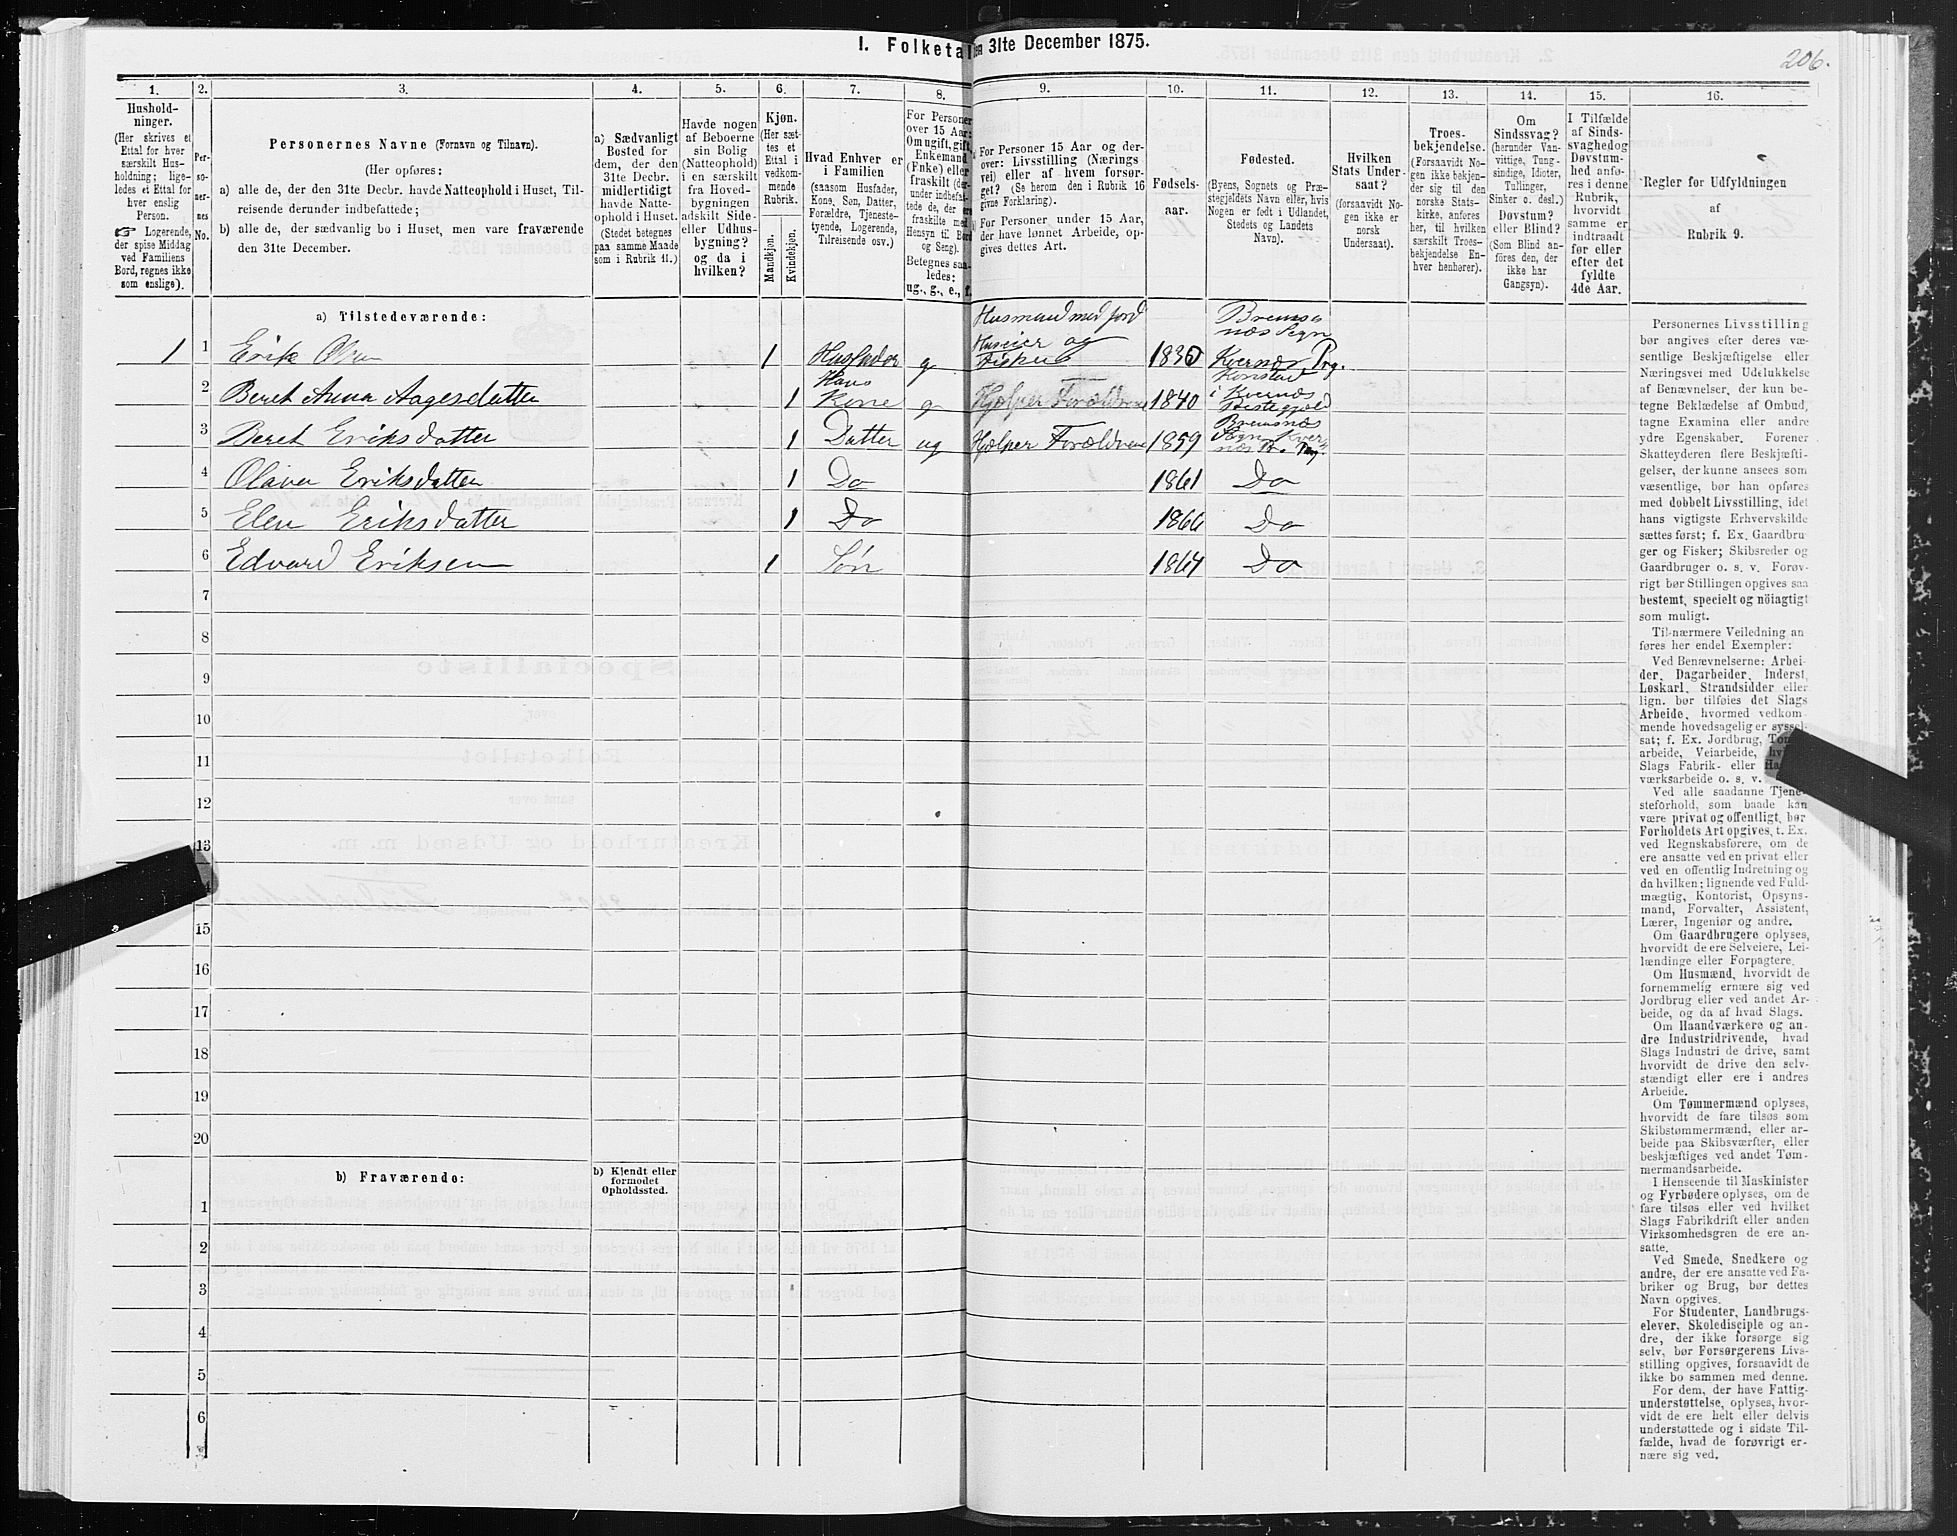 I. Folketal den 31te December 1875.
206.
1. 2. 3. 4. 5. 6. 7. 8. 9. 10. 11. 12. 13. 14. 15. 16.
Hushold-
ninger.
(Her skrives et
Ettal for hver
særskilt Hus-
holdning; lige-
ledes et Ettal for
hver enslig
Person.
☞ Logerende,
der spise Middag
ved Familiens
Bord, regnes ikke
som enslige).
Per-
so-
ner-
nes
No.
Personernes Navne (Fornavn og Tilnavn).
(Her opføres:
a) alle de, der den 31te Decbr. havde Natteophold i Huset, Til-
reisende derunder indbefattede;
b) alle de, der sædvanlig bo i Huset, men vare fraværende
den 31te December.
a) Sædvanligt
Bosted for
dem, der den
31te Decbr.
midlertidigt
havde Natte-
ophold i Huset.
(Stedet betegnes
paa samme Maade
som i Rubrik 11.)
Havde nogen
af Beboerne
sin Bolig
(Natteophold)
i en særskilt
fra Hoved-
bygningen
adskilt Side-
eller Udhus-
bygning?
og da i
hvilken?
Kjøn.
(Her sæt-
tes et
Ettal i
vedkom-
mende
Rubrik.
Mandkjøn.
Kvindekjøn.
Hvad Enhver er
i Familien
(saasom Husfader,
Kone, Søn, Datter,
Forældre, Tjeneste-
tyende, Logerende,
Tilreisende osv.)
For Personer
over 15 Aar:
Om ugift, gift,
Enkemand
(Enke) eller
fraskilt (der-
under indbefat-
tede de, der ere
fraskilte med
Hensyn til Bord
og Seng).
Betegnes saa-
ledes:
ug., g., e., f.
For Personer 15 Aar og der-
over: Livsstilling (Nærings-
vei) eller af hvem forsør-
get? (Se herom den i Rubrik 16
givne Forklaring).
For Personer under 15 Aar,
der have lønnet Arbeide, op-
gives dettes Art.
Fødsels-
aar.
Fødested.
(Byens, Sognets og Præ-
stegjeldets Navn eller, hvis
Nogen er født i Udlandet,
Stedets og Landets
Navn).
Hvilken
Stats Under-
saat?
(forsaavidt No-
gen ikke er
norsk
Undersaat).
Troes-
bekjendelse.
(Forsaavidt No-
gen ikke bekjen-
der sig til den
norske Stats-
kirke, anføres
her, til hvilken
særskilt Troes-
bekjendelse En-
hver henhører).
Om
Sindssvag?
(herunder Van-
vittige, Tung-
sindige, Idioter,
Tullinger,
Sinker o. desl.)
Døvstum?
eller Blind?
(Som Blind an-
føres den, der
ikke har
Gangsyn).
I Tilfælde
af Sinds-
svaghed og
Døvstum-
hed anfø-
res i denne
Rubrik,
hvorvidt
samme er
indtraadt
før eller
efter det
fyldte
4de Aar.
Regler før Udfyldningen
af
Rubrik 9.
a) Tilstedeværende:
Husmand med jord
Bremse
næs Sogn
1 1 Erik Olsen 1 Husfader g Huseier og Fisker 1830 Kvernæs Prg.
2 Beret Anna Aagesdatter 1 Hans Kone g Hjælper Forældrene 1840 i Kvernæs
3 Beret Eriksdatter 1 Datter ug Hjælper Forældrene 1859 Bremsnæs Sogn Kver næs
4 Olava Eriksdatter 1 Do 1861 Do
5 Elen Eriksdatter 1 Do 1866 Do
6 Edvard Eriksen 1 Søn 1864 Do
7
8
9
10
11
12
13
15
16
17
18
19
20
b) Fraværende:
b) Kjendt eller
formodet
Opholdssted.
1
2
3
4
5
6
Personernes Livsstilling
bør angives efter deres væ-
sentlige Beskjæftigelse eller
Næringsvei med Udelukkelse
af Benævnelser, der kun be-
tegne Beklædelse af Ombud,
tagne Examina eller andre
ydre Egenskaber. Forener
Skatteyderen flere Beskjæfti-
gelser, der kunne ansees som
væsentlige, bør han opføres
med dobbelt Livsstilling, idet
hans vigtigste Erhvervskilde
sættes først; f. Ex. Gaardbru-
ger og Fisker; Skibsreder og
Gaardbruger o. s. v. Forøv-
rigt bør Stillingen opgives saa
bestemt, specielt og nöiagtigt
som muligt.
Til nærmere Veiledning an
føres her endel Exempler:
Ved Benævnelserne: Arbei-
der, Dagarbeider, Inderst,
Løskarl, Strandsidder eller
lign. bør tilføies det Slags
Arbeide, hvormed vedkom-
mende hovedsagelig er syssel-
sat; f. Ex. Jordbrug,
arbeide, Veiarbeide,
Slags Fabrik- eller
værksarbeide o. s. v.
Ved alle saadanne Tjene-
steforhold, som baade kan
være privat og offentligt, bør
Forholdets Art opgives, t. Ex.
ved Regnskabsførere, om de
ere ansatte ved en privat eller
ved en offentlig Indretning og
da hvilken; lignende ved Fuld-
mægtig, Kontorist, Opsyns-
mand, Forvalter, Assistent,
Lærer, Ingeniør og andre.
Om Gaardbrugere oplyses,
hvorvidt de ere Selveiere, Lei-
lændinge eller Forpagtere.
Om Husmænd, hvorvidt de
fornemmelig ernære sig ved
Jordbrug eller ved andet Ar-
beide, og da af hvad Slags.
Om Haandværkere og an-
dre Industridrivende, hvad
Slags Industri de drive, samt
hvorvidt de drive den selv-
stændigt eller ere i andres
Arbeide.
Om Tømmermænd oplyses,
hvorvidt de fare tilsøs som
Skibstømmermænd, eller ar-
beide paa Skibsværfter, eller
beskjæftiges ved andet Tøm-
mermandsarbeide.
I Henseende til Maskinister
og Fyrbødere oplyses, om de
fare tilsøs eller ved hvilket
Slags Fabrikdrift eller anden
Virksomhedsgren de ere an-
satte.
Ved Smede, Snedkere og
andre, der ere ansatte ved Fa-
briker og Brug, bør dettes
Navn opgives.
For Studenter, Landbrugs-
elever, Skoledisciple og an-
dre, der ikke forsørge sig
selv, bør Forsørgerens Livs-
stilling opgives, forsaavidt de
ikke bo sammen med denne.
For dem, der have Fattig-
understøttelse, oplyses, hvor-
vidt de ere helt eller delvis
understøttede og i sidste Til-
fælde, hvad de forøvrigt er-
nære sig ved.